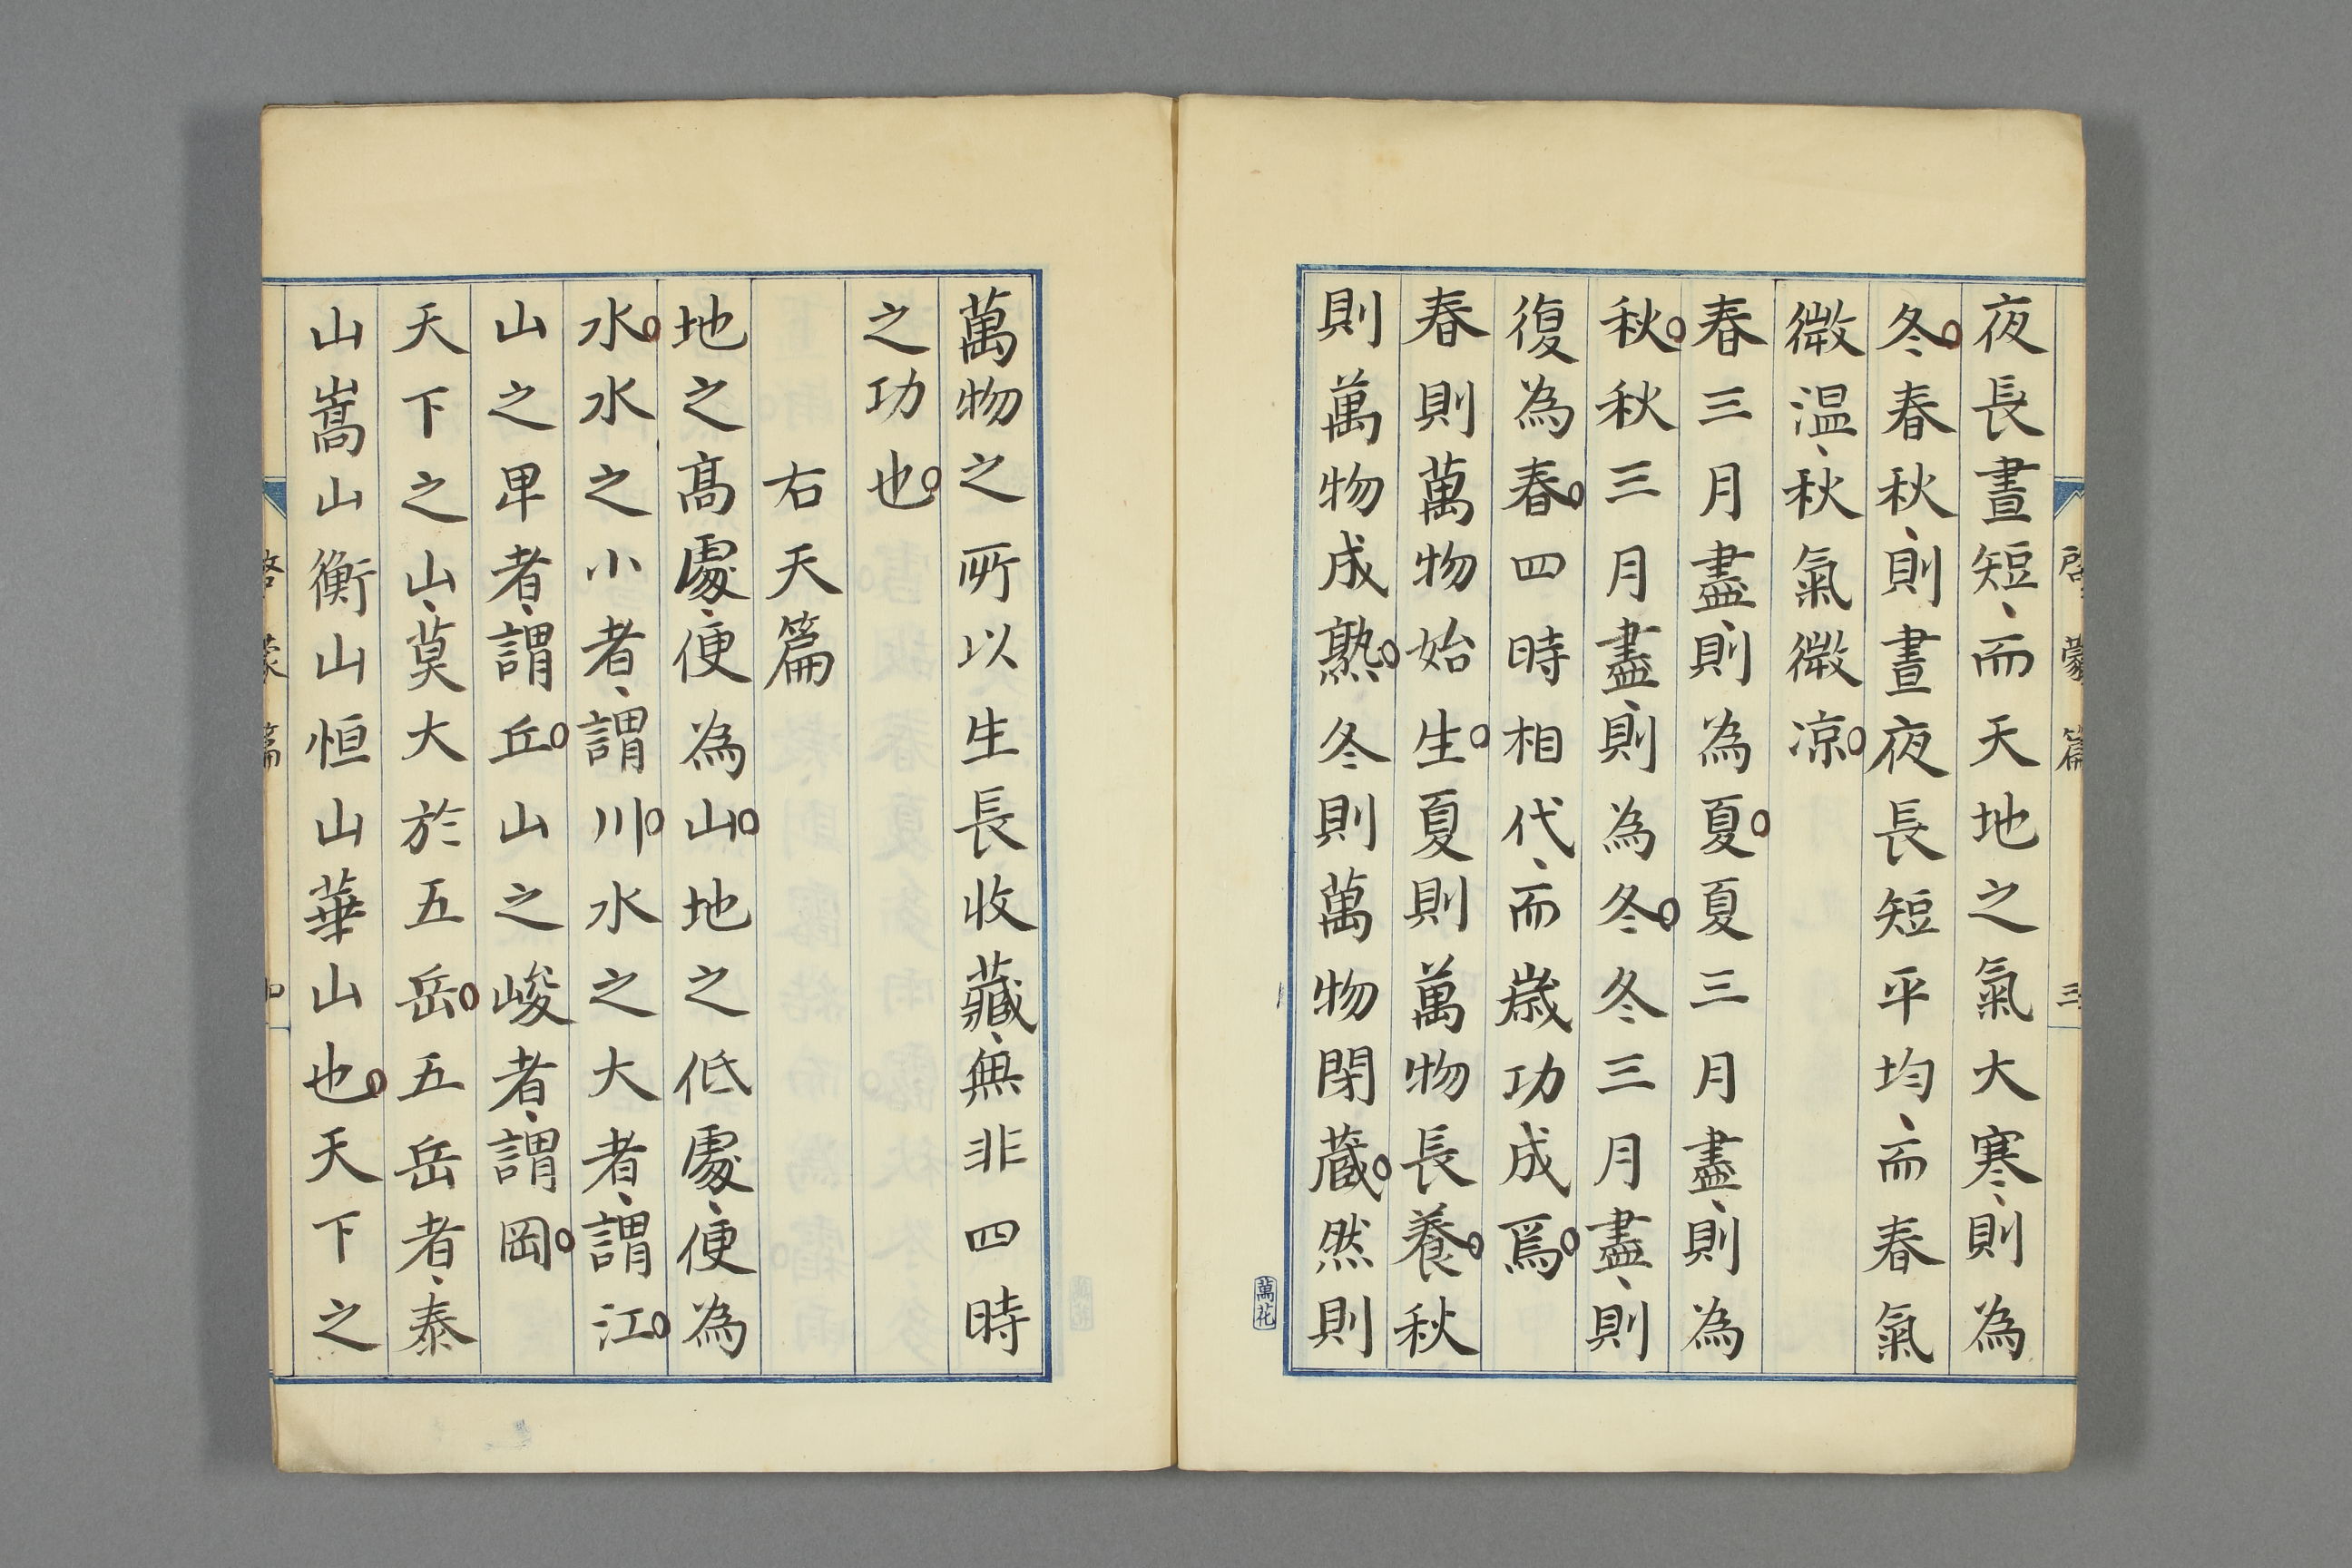 啓蒙篇 三
夜長晝短、而天地之氣大寒、則為
冬。春秋、則晝夜長短平均、而春氣
微温、秋氣微凉。
春三月盡、則為夏。夏三月盡、則為
秋。秋三月盡、則為冬。冬三月盡、則
復為春。四時相代、而歲功成焉。
春則萬物始生。夏則萬物長養。秋
則萬物成熟。冬則萬物閉蔵。然則
萬花
萬物之所以生長收藏、無非四時
之功也。
右天篇
地之高處、便為山。地之低處、便為
水。水之小者、謂川。水之大者、謂江。
山之卑者、謂丘。山之峻者、謂岡。
天下之山、莫大於五岳。五岳者、泰
山嵩山衡山恒山華山也。天下之
啓蒙篇 四